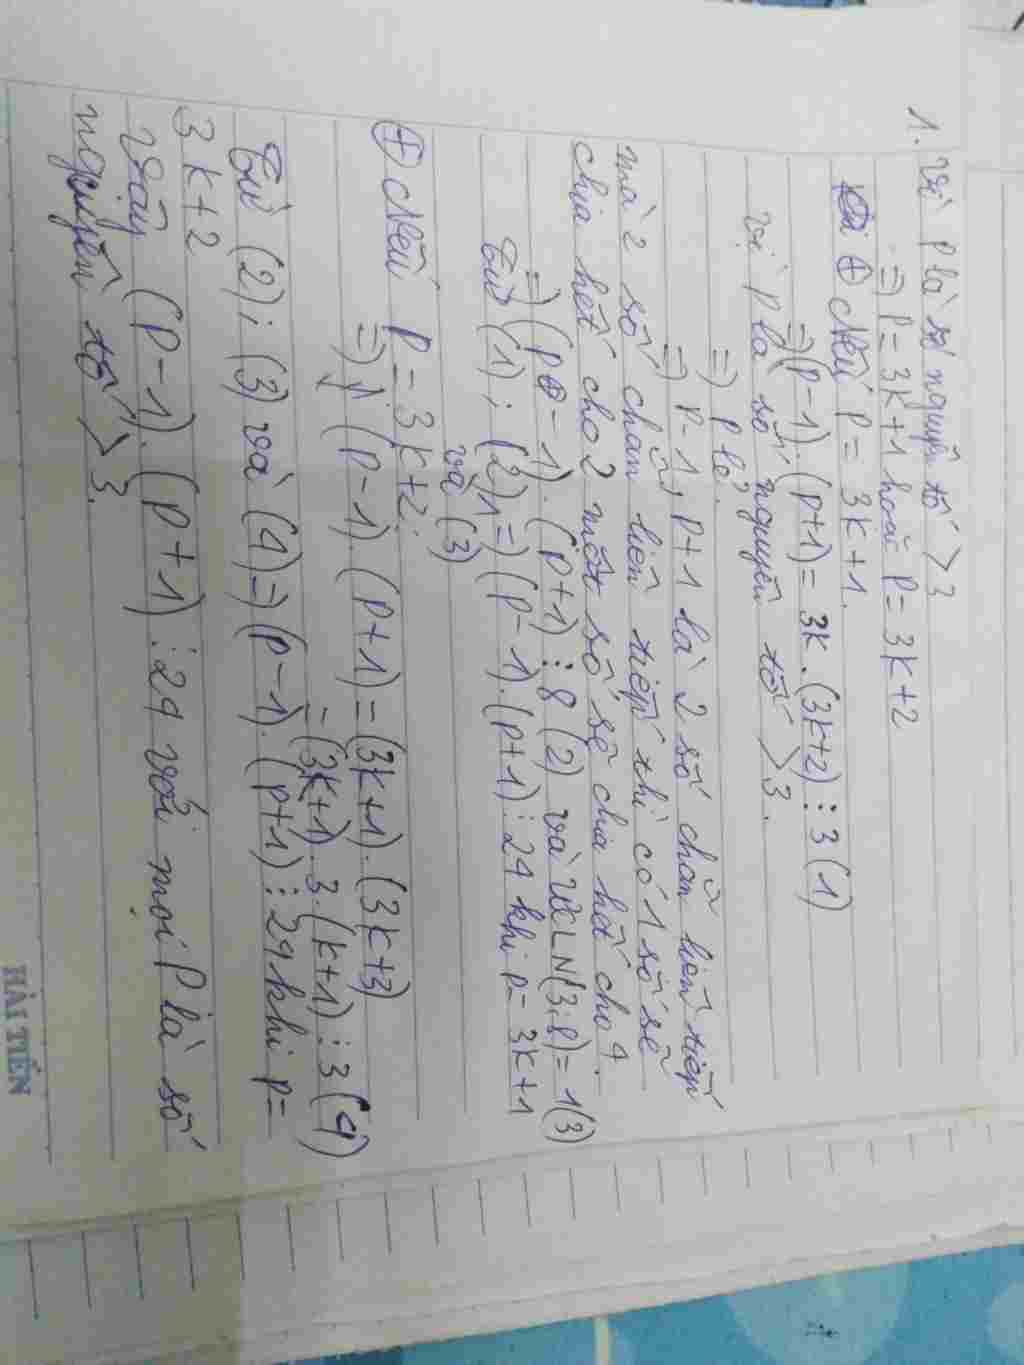 1. Vì P là số nguyên tố > 3
=) P = 3K+1 hoặc P = 3K+2
⊕ Nếu P = 3K+1.
=) (P-1).(P+1) = 3K.(3K+2) ⋮ 3 (1)
Vì P là số nguyên tố > 3.
=) P lẻ
=) P-1, P+1 là 2 số chẵn liên tiếp
mà 2 số chẵn liên tiếp thì có 1 số sẽ
chia hết cho 2 một số sẽ chia hết cho 4.
=) (P-1).(P+1) ⋮ 8 (2) và ƯCLN(3;8)=1(3)
Từ (1); (2) và (3) =) (P-1).(P+1) ⋮ 24 khi P = 3K+1
⊕ Nếu P = 3K+2.
=) (P-1).(P+1) = (3K+1).(3K+3)
= (3K+1).3.(K+1) ⋮ 3 (4)
Từ (2); (3) và (4) =) (P-1).(P+1) ⋮ 24 khi P =
3K+2
Vậy (P-1).(P+1) ⋮ 24 với mọi P là số
nguyên tố > 3.
HẢI TIẾN